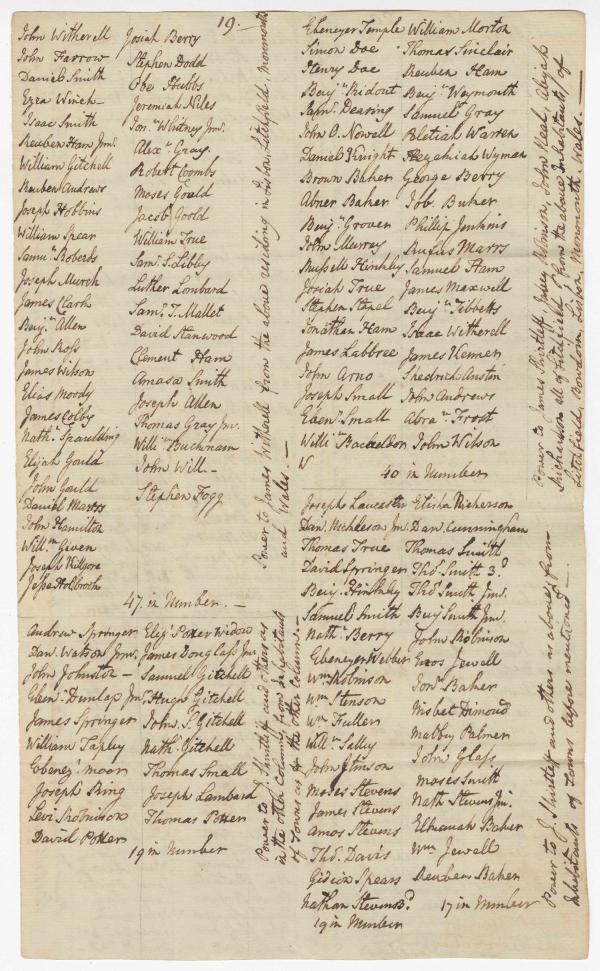 19.
John Witherell
John Farrow
Daniel Smith
Ezra Winch
Isaac Smith
Reuben Ham Jnr.
William Gitchell
Reuben Andrews
Joseph Hobbins
William Spear
Samu. Roberts
Joseph Murch
James Clark
Benj.n Allen
John Ross
James Wilson
Elias Mordy
James Colby
Nath.l Spaulding
Elijah Gould
John Gould
Daniel Marss
John Hamilton
Will.m Given
Joseph Killgore
Jesse Holbrook
Josiah Berry
Stephen Dodd
Obe Hubbs
Jeremiah Niles
Jon.n Whitney Jnr.
Alex.r Gray
Robert Coombs
Moses Gould
Jacob Goold
William True
Sam.l S. Libby
Luther Lombard
Sam.l T. Mallet
David Stanwood
Clement Ham
Amasa Smith
Joseph Allen
Thomas Gray Jnr.
Will.m Bucknam
John Will
Stephen Fogg
47 in Number. —
Power to James Witherell from the above residing in Lisbon, Litchfield, Monmouth
and Wales. —
Andrew Springer
Dan. Watson Jnr.
John Johnston —
Eben. Dunlap Jnr.
James Springer
William Tapley
Ebenez.r Moor
Joseph King
Levi Robinson
David Potter
Eliz.h Potter Widow
James Douglass Jnr.
Samuel Gitchell
Hugh Gitchell
John S. Gitchell
Nath. Gitchell
Thomas Small
Joseph Lambard
Thomas Potter
19 in Number
Power to J. Shurtleff and others as
in the other column, from Inhabitants
of Towns as of the other Column. —
Ebenezer Temple
Simon Doe
Henry Doe
Benj.n Ridout
Sam.l Dearing
John O. Newell
Daniel Knight
Brown Baker
Abner Baker
Benj.n Grover
John Murray
Russell Hinkley
Josiah True
Stephen Stapel
Jonathan Ham
James Labbree
John Arno
Joseph Small
Eben.r Small
Willi.m Bacheldor
William Morton
Thomas Sinclair
Reuben Ham
Benj.n Weymouth
Samuel Gray
Pletiah Warren
Hezekiah Wyman
George Berry
Job Buker
Phillip Jenkins
Rufus Marrs
Samuel Ham
James Maxwell
Benj.n Tibbetts
Isaac Witherell
James Kenner
Shedrich Austin
John Andrews
Abra.m Frost
John Wilson
40 in Number
Power to James Shurtleff, Jessey Robinson, John Neal, Abijah
Richardson all of Litchfield, from the above Inhabitants of
Litchfield, Bowdoin, Lisbon, Monmouth, Wales. —
Joseph Lancaster
Dan. Nickelson Jnr.
Thomas True
David Springer
Benj. Hinkley
Samuel Smith
Nath.l Berry
Ebenezer Webber
Wm. Robinson
Wm. Stenson
Wm. Fuller
Will.m Salley
John Stinson
Moses Stevens
James Stevens
Amos Stevens
Tho.s Davis
Gideon Spears
Nathan Stevens 3d.
19 in Number
Elisha Nickerson
Dan. Cunningham
Thomas Smith
Tho.s Smith 3d.
Tho.s Smith Jnr.
Benj. Smith Jnr.
John Robinson
Enos Jewell
Jon.n Baker
Nisbet Dimond
Maltby Palmer
John Glass
Moses Smith
Nath Stevens Jnr.
Elkanah Baker
Wm. Jewall
Reuben Baker
17 in Number
Power to J. Shurtleff and others as above, from
Inhabitants of Towns before mentioned —